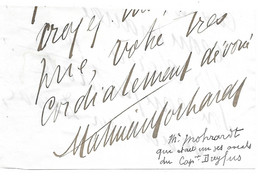 croyez
votre très
cordialement dévoué
Mr Mohrardt
qui était un des avocats
du Capt. Dreyfus